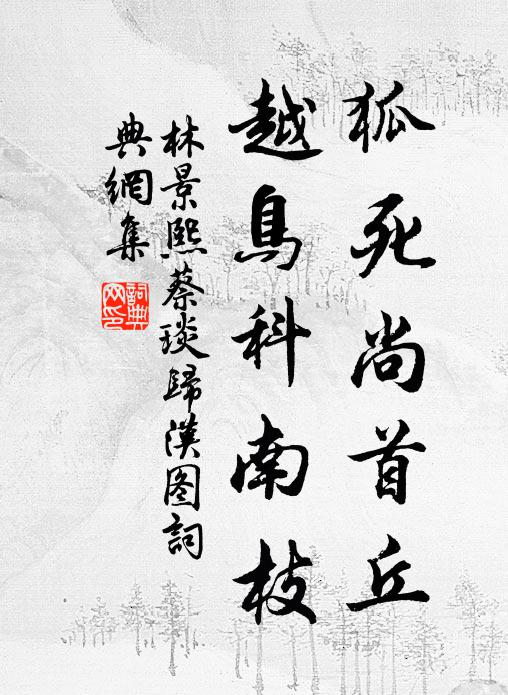 狐死尚首丘
越鳥科南枝
林景熙蔡琰歸漢图詞
典網集
詞典网印